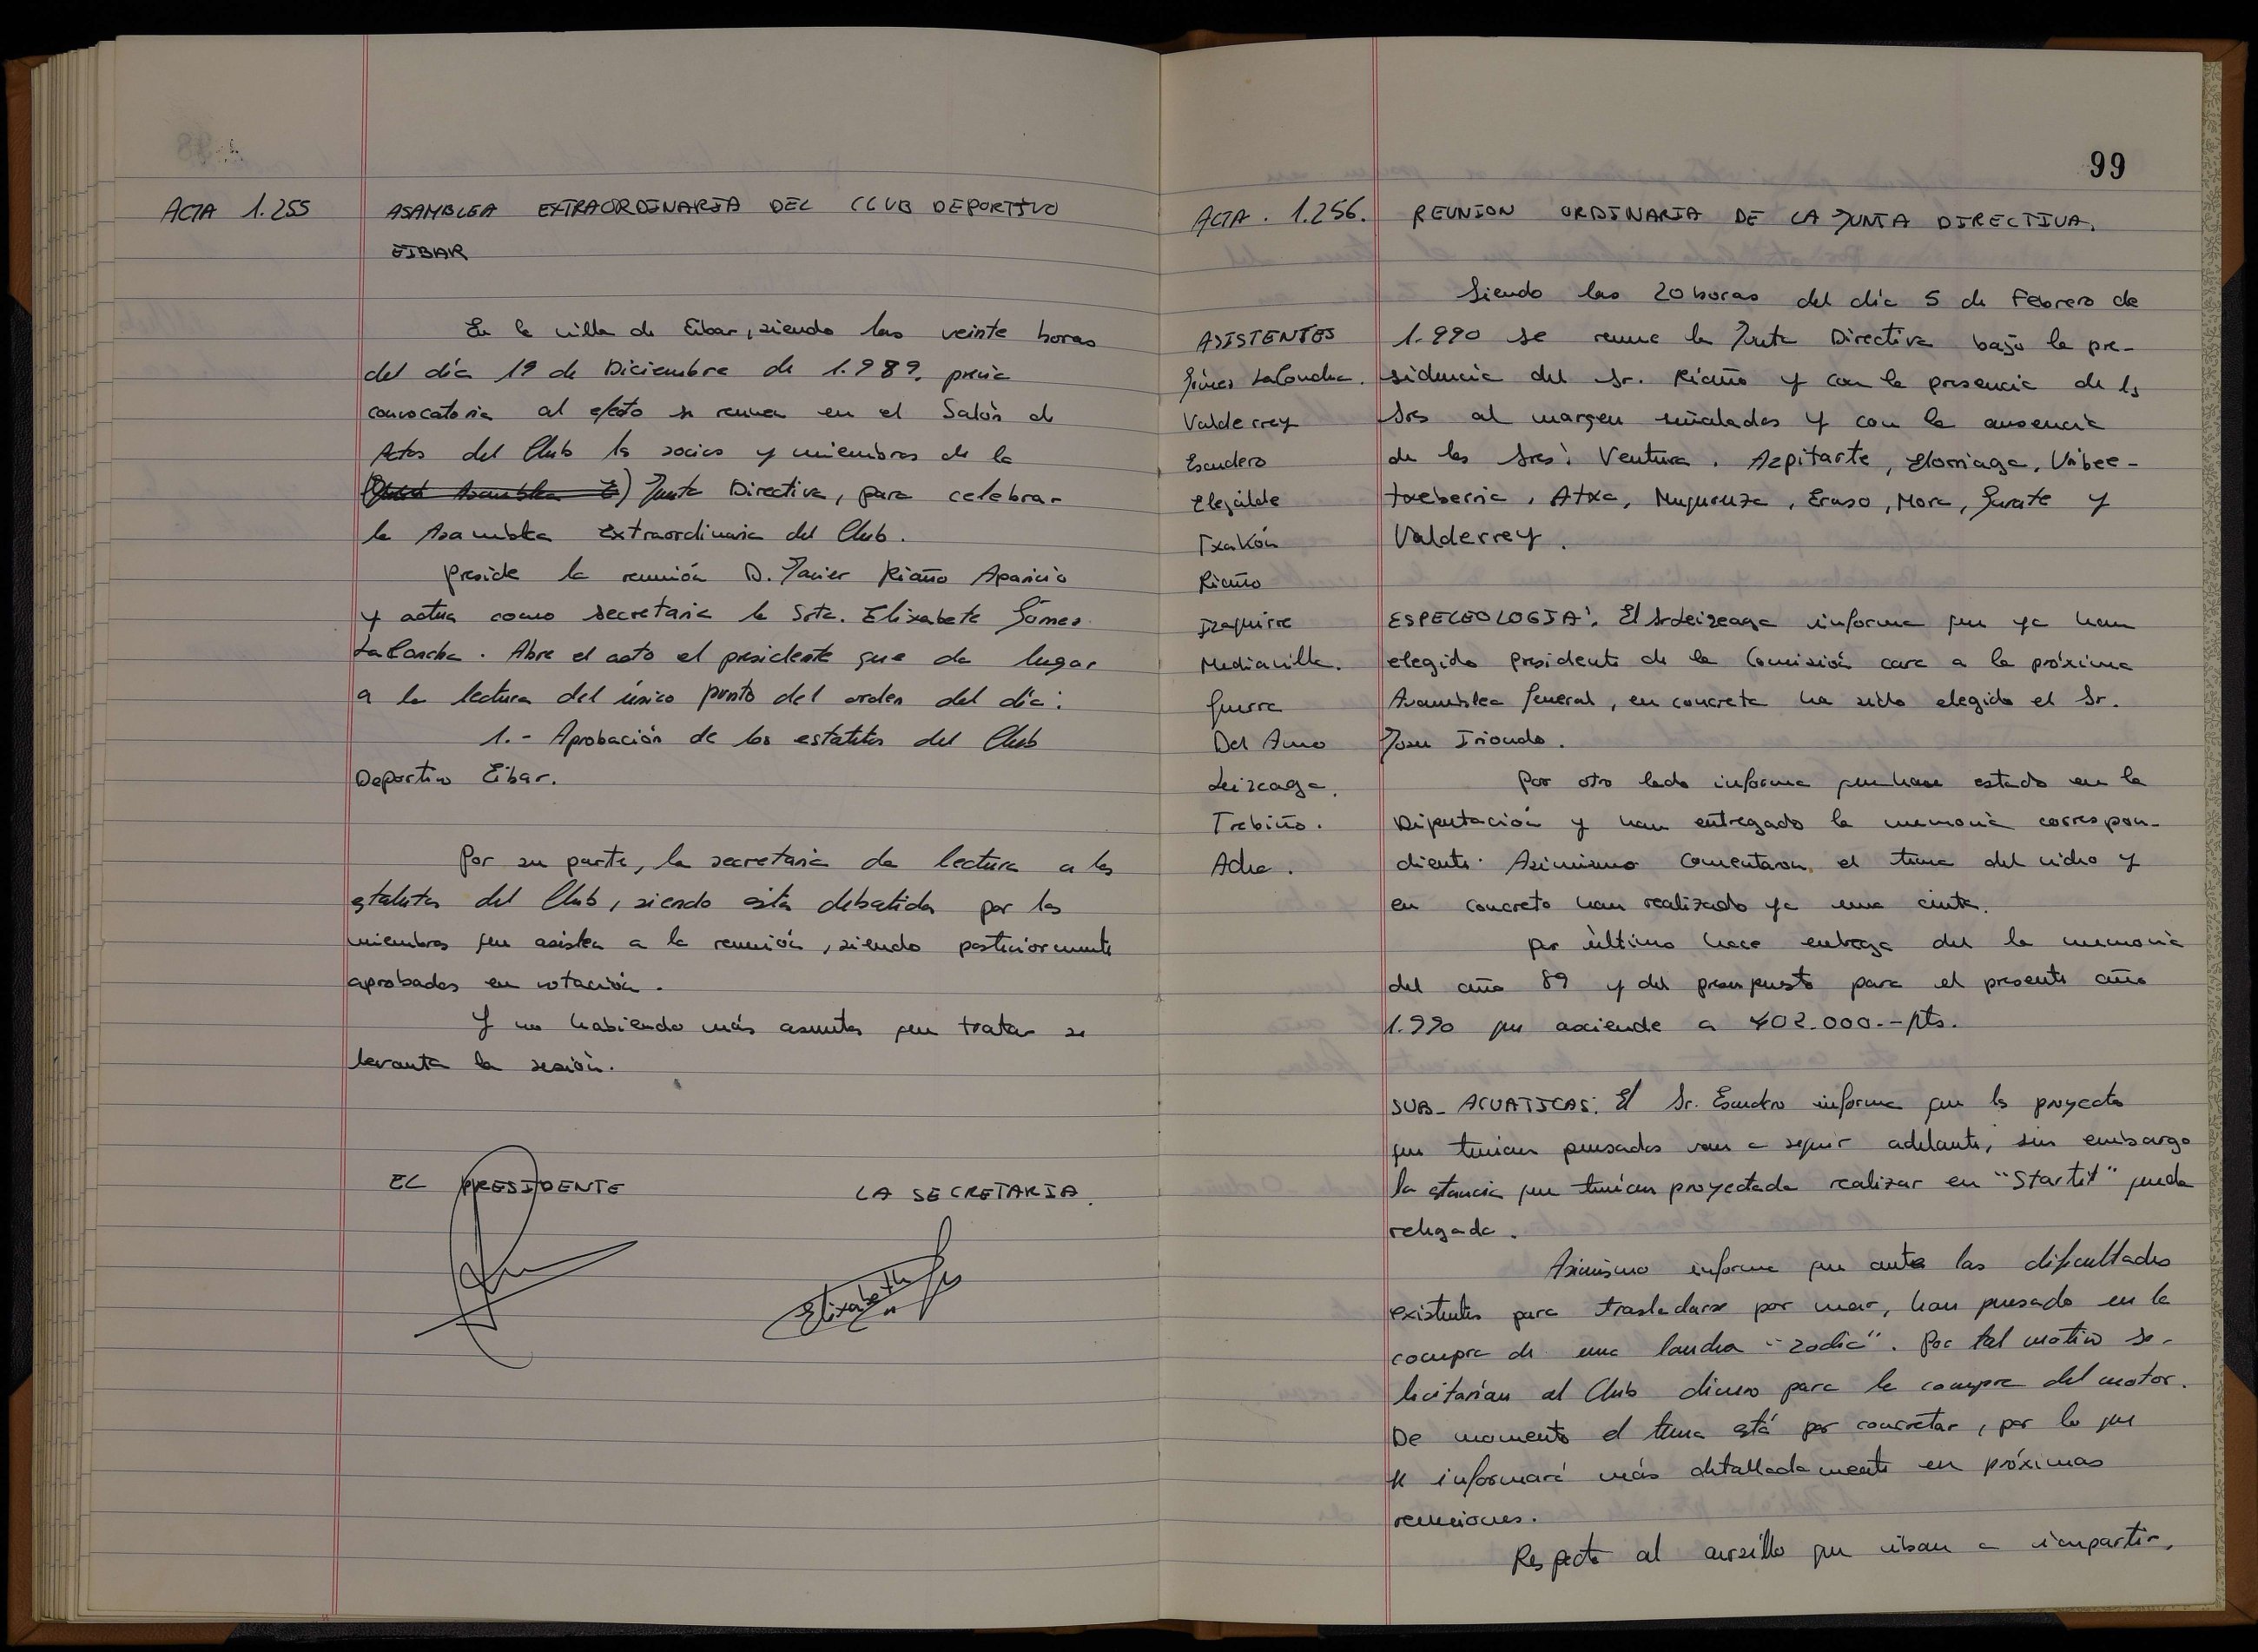 ACTA 1.255
ASAMBLEA EXTRAORDINARIA DEL CLUB DEPORTIVO
EIBAR
En la villa de Eibar, siendo las veinte horas
del día 19 de Diciembre de 1.989, previa
convocatoria al efecto se reunen en el Salón de
Actos del Club los socios y miembros de la
Junta Directiva, para celebrar
la Asamblea Extraordinaria del Club.
Preside la reunión D. Javier Riaño Aparicio
y actua como secretaria la Srta. Elixabete Gómez
LaConcha. Abre el acto el presidente que da lugar
a la lectura del único punto del orden del día:
1.- Aprobación de los estatutos del Club
Deportivo Eibar.
Por su parte, la secretaria da lectura a los
estatutos del Club, siendo estos debatidos por los
miembros que asisten a la reunión, siendo posteriormente
aprobados en votación.
Y no habiendo más asuntos que tratar se
levanta la sesión.
EL PRESIDENTE
LA SECRETARIA.
99
ACTA. 1.256.
REUNION ORDINARIA DE LA JUNTA DIRECTIVA.
ASISTENTES
Gómez LaConcha.
Valderrey
Escudero
Elejalde
Txakón
Riaño
Izaguirre
Mediavilla.
Guerra
Del Amo
Leizeaga.
Trebiño.
Acha.
Siendo las 20 horas del día 5 de Febrero de
1.990 se reune la Junta Directiva bajo la pre-
sidencia del Sr. Riaño y con la presencia de los
Sres al margen señalados y con la ausencia
de los Sres: Ventura, Azpitarte, Elorriaga, Uribee-
txeberria, Atxa, Muguruza, Eraso, Mora, Garate y
Valderrey.
ESPELEOLOGIA: El Sr Leizeaga informa que ya han
elegido presidente de la Comisión cara a la próxima
Asamblea General, en concreto ha sido elegido el Sr.
Josu Iriondo.
Por otro lado informa que han estado en la
Diputación y han entregado la memoria correspon-
diente. Asimismo comentaron el tema del video y
en concreto han realizado ya una cinta.
por último hace entrega del la memoria
del año 89 y del presupuesto para el presente año
1.990 que asciende a 402.000.- pts.
SUB-ACUATICAS: El Sr. Escudero informa que los proyectos
que tenian pensados van a seguir adelante, sin embargo
la estancia que tenian proyectada realizar en "Startit" queda
relegada.
Asimismo informa que ante las dificultades
existentes para trasladarse por mar, han pensado en la
compra de una lancha "zodia". Por tal motivo so-
licitarían al Club dinero para la compra del motor.
De momento el tema está por concretar, por lo que
se informará más detalladamente en próximas
reuniones.
Respecto al cursillo que iban a impartir,